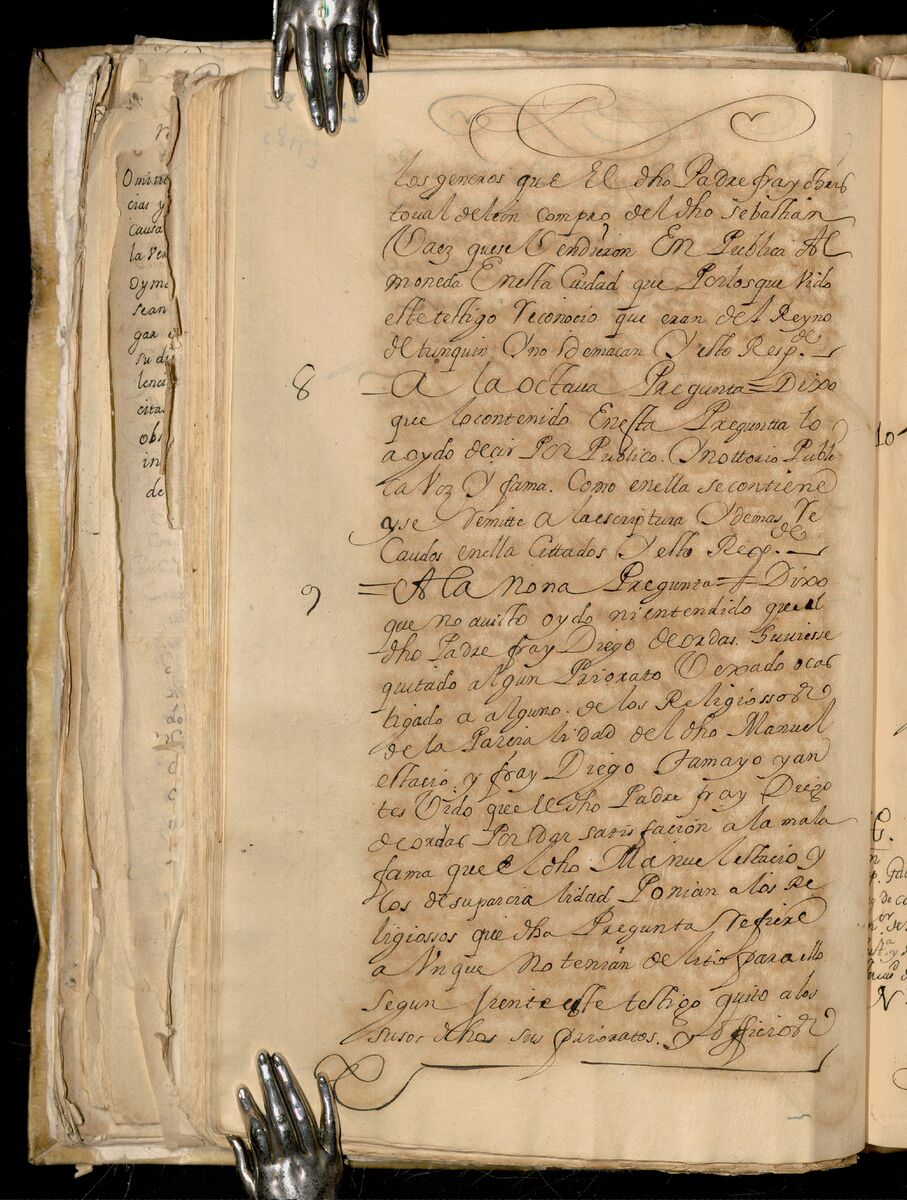 los generos que El dho Padre fray chris
toual de leon compro del dho sebasthian
Vaez que se Vendieron En Publica Al
moneda En esta Ciudad que Por los que Vido
este testigo Reconocio que eran del Reyno
de tunquin Y no de macan Y esto Resp.de
8 A la octaua Pregunta = Dixo
que lo contenido En esta Preguntta lo
a oydo decir Por Publico. Y nottorio Publi
ca Voz Y fama. Como en ella se contiene
y se Remitte a la escriptura Y demas Re
Caudos en ella Cittados Y esto Resp.de
9 = A la nona Pregunta = Dixo
que no a uisto oydo ni entendido que el
dho Padre fray Diego de ordas. Huuiesse
quitado algun Priorato Vexado o cas
tigado a alguno. de los Religiossos
de la Parcialidad del dho Manuel
estacio y fray Diego Tamayo y an
tes Vido que el dho Padre fray Diego
de ordas Por dar satisfacion a la mala
fama que el dho Manuel estacio y
los de su parcialidad Ponian a los Re
ligiossos que dha Pregunta Refiere
a Vnque no tenian delito para ello
segun siente este testigo quito a los
susos dhos sus prioratos. y officios
Omitti
cias y
Causa
la Ven
Dyme
sean
gar
su di
lenci
cita
obs
in
de
10